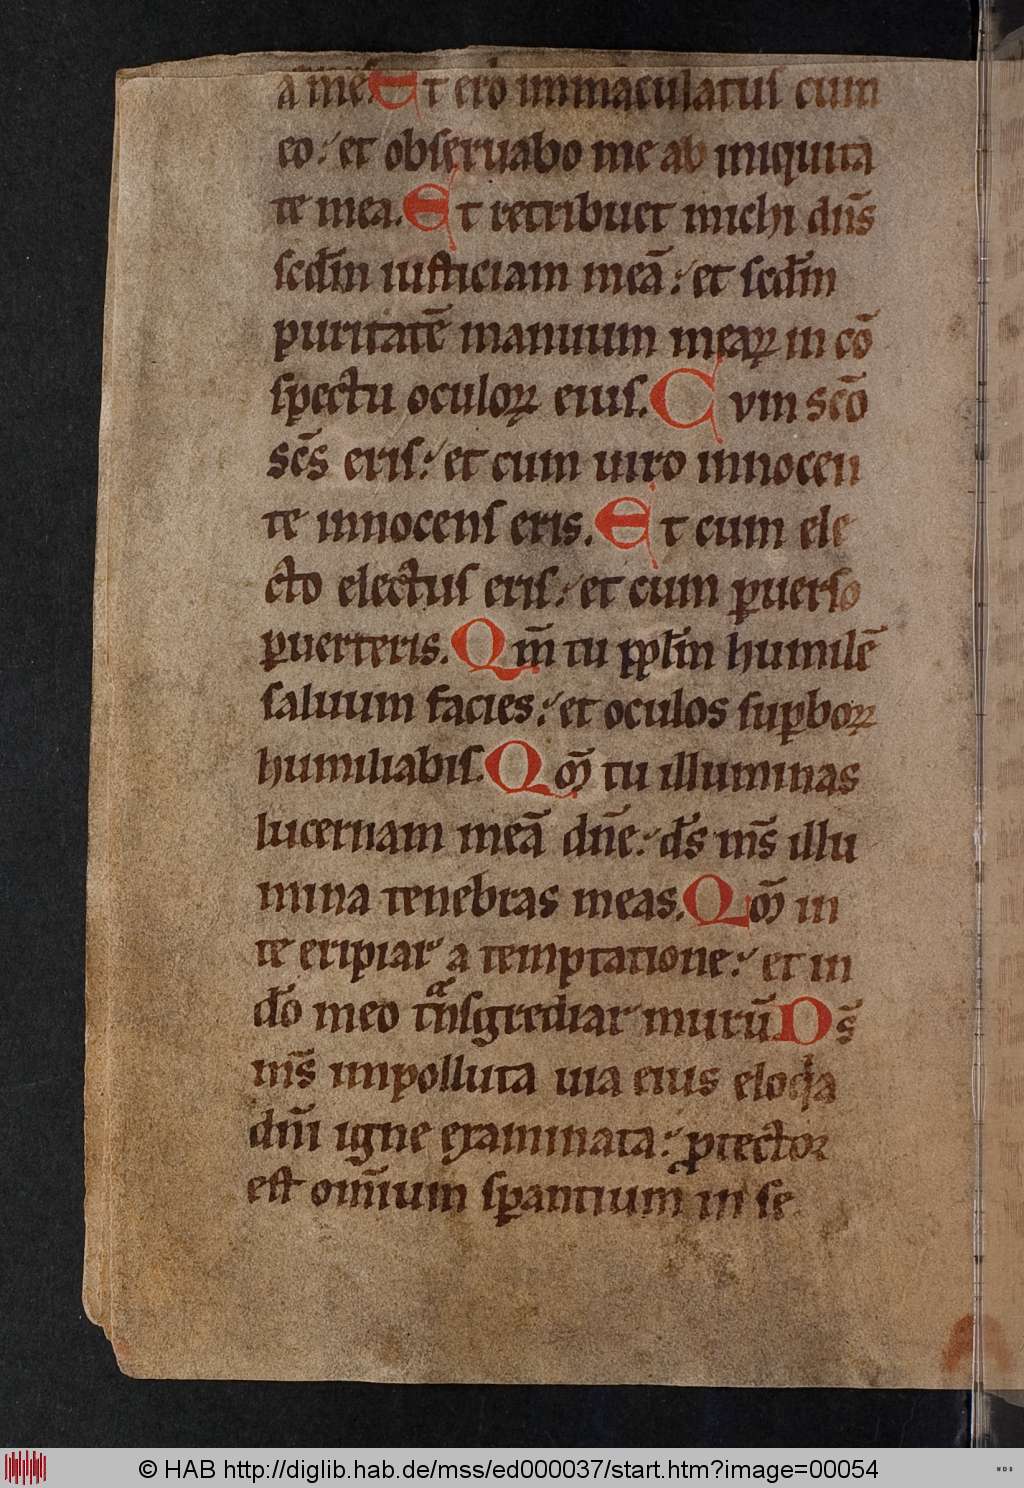 a me. Et ero immaculatus cum
eo : et obseruabo me ab iniquita
te mea. Et retribuet michi dn̄s
scd̄m iusticiam meā : et scd̄m
puritatē manuum meaꝝ in cō
spectu oculoꝝ eius. Cum scō
scs̄ eris : et cum uiro innocen
te innocens eris. Et cum ele
cto electus eris : et cum ꝑuerso
ꝑuerteris. Qm̄ tu pp̄lm humilē
saluum facies : et oculos suꝑboꝝ
humiliabis. Qm̄ tu illuminas
lucernam meā dn̄e : ds̄ ms̄ illu
mina tenebras meas. Qm̄ in
te eripiar a temptatione : et in
dō meo tͣnsgrediar murū. Ds̄
ms̄ impolluta uia eius eloq̄a
dn̄i igne examinata : ꝓtector
est om̄ium sꝑantium in se
© HAB http://diglib.hab.de/mss/ed000037/start.htm?image=00054